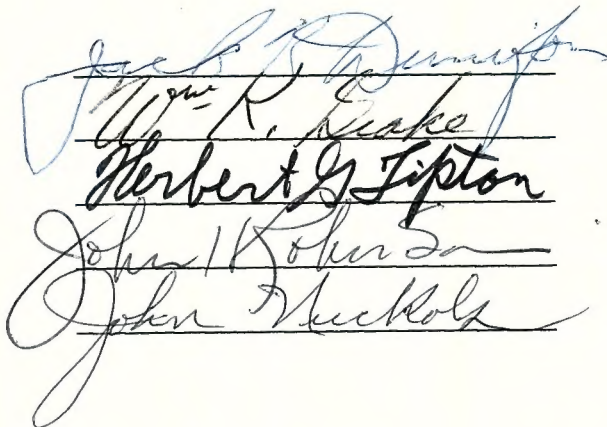 Jack R Dennison
Wm R. Deake
Herbert G Tipton
John Robinson
John Nuckols